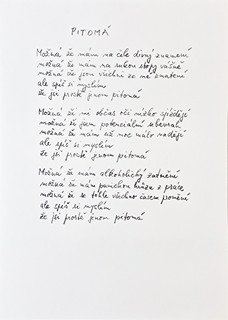 PITOMÁ
Možná že mám na čele divný znamení
možná že mám na rukou stopy vášně
možná že jsou všichni ze mě zmatení
ale spíš si myslím
že jsi prostě jenom pitomá
Možná že mi občas oči nízko sjíždějí
možná že jsem potenciální sebevrah
možná že mám už moc málo nadějí
ale spíš si myslím
že jsi prostě jenom pitomá
Možná že mám alkoholický zatmění
možná že mám panickou hrůzu z práce
možná že se tohle všechno časem změní
ale spíš si myslím
že jsi prostě jenom pitomá